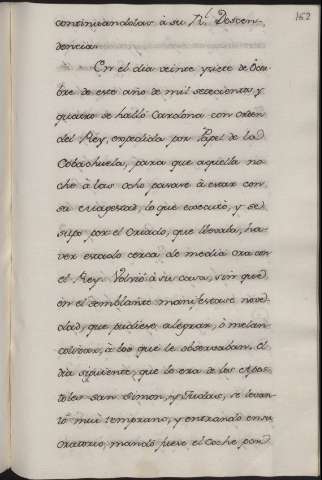 162
continuandolas à su Rl. Descen-
dencia.
En el dia veinte y siete de Octu-
bre de este año de mil setecientos, y
quatro se hallò Carabina con orden
del Rey, expedida por Papel de la
Cobachuela, para que aquella no-
che à las ocho pasase à estar con
su Magestad, lo que executò, y se
supo por el Criado, que llevaba, ha-
ver estado cerca de media ora con
el Rey. Volviò à su casa, sin que
en el semblante manifestase nove-
dad, que pudiese alegrar, ò melan-
colizar, à los que le observaban. El
dia siguiente, que lo era de los Apos-
toles san Simon, y Judas, se levan-
tò mui temprano, y entrando en su
oratorio, mandò fuese el Coche por